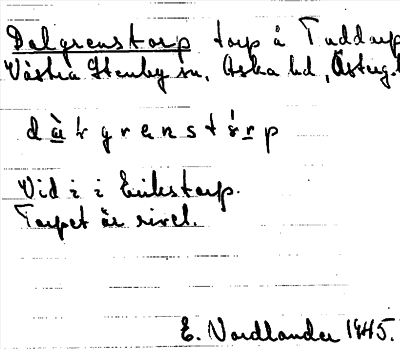 Dalgrenstorp torp å Tuddorp
Västra Stenby sn, Aska hd, Östug.
dàlgrenstórp
Vid i i Erikstorp.
Torpet är rivet.
E. Nordlander 1945.